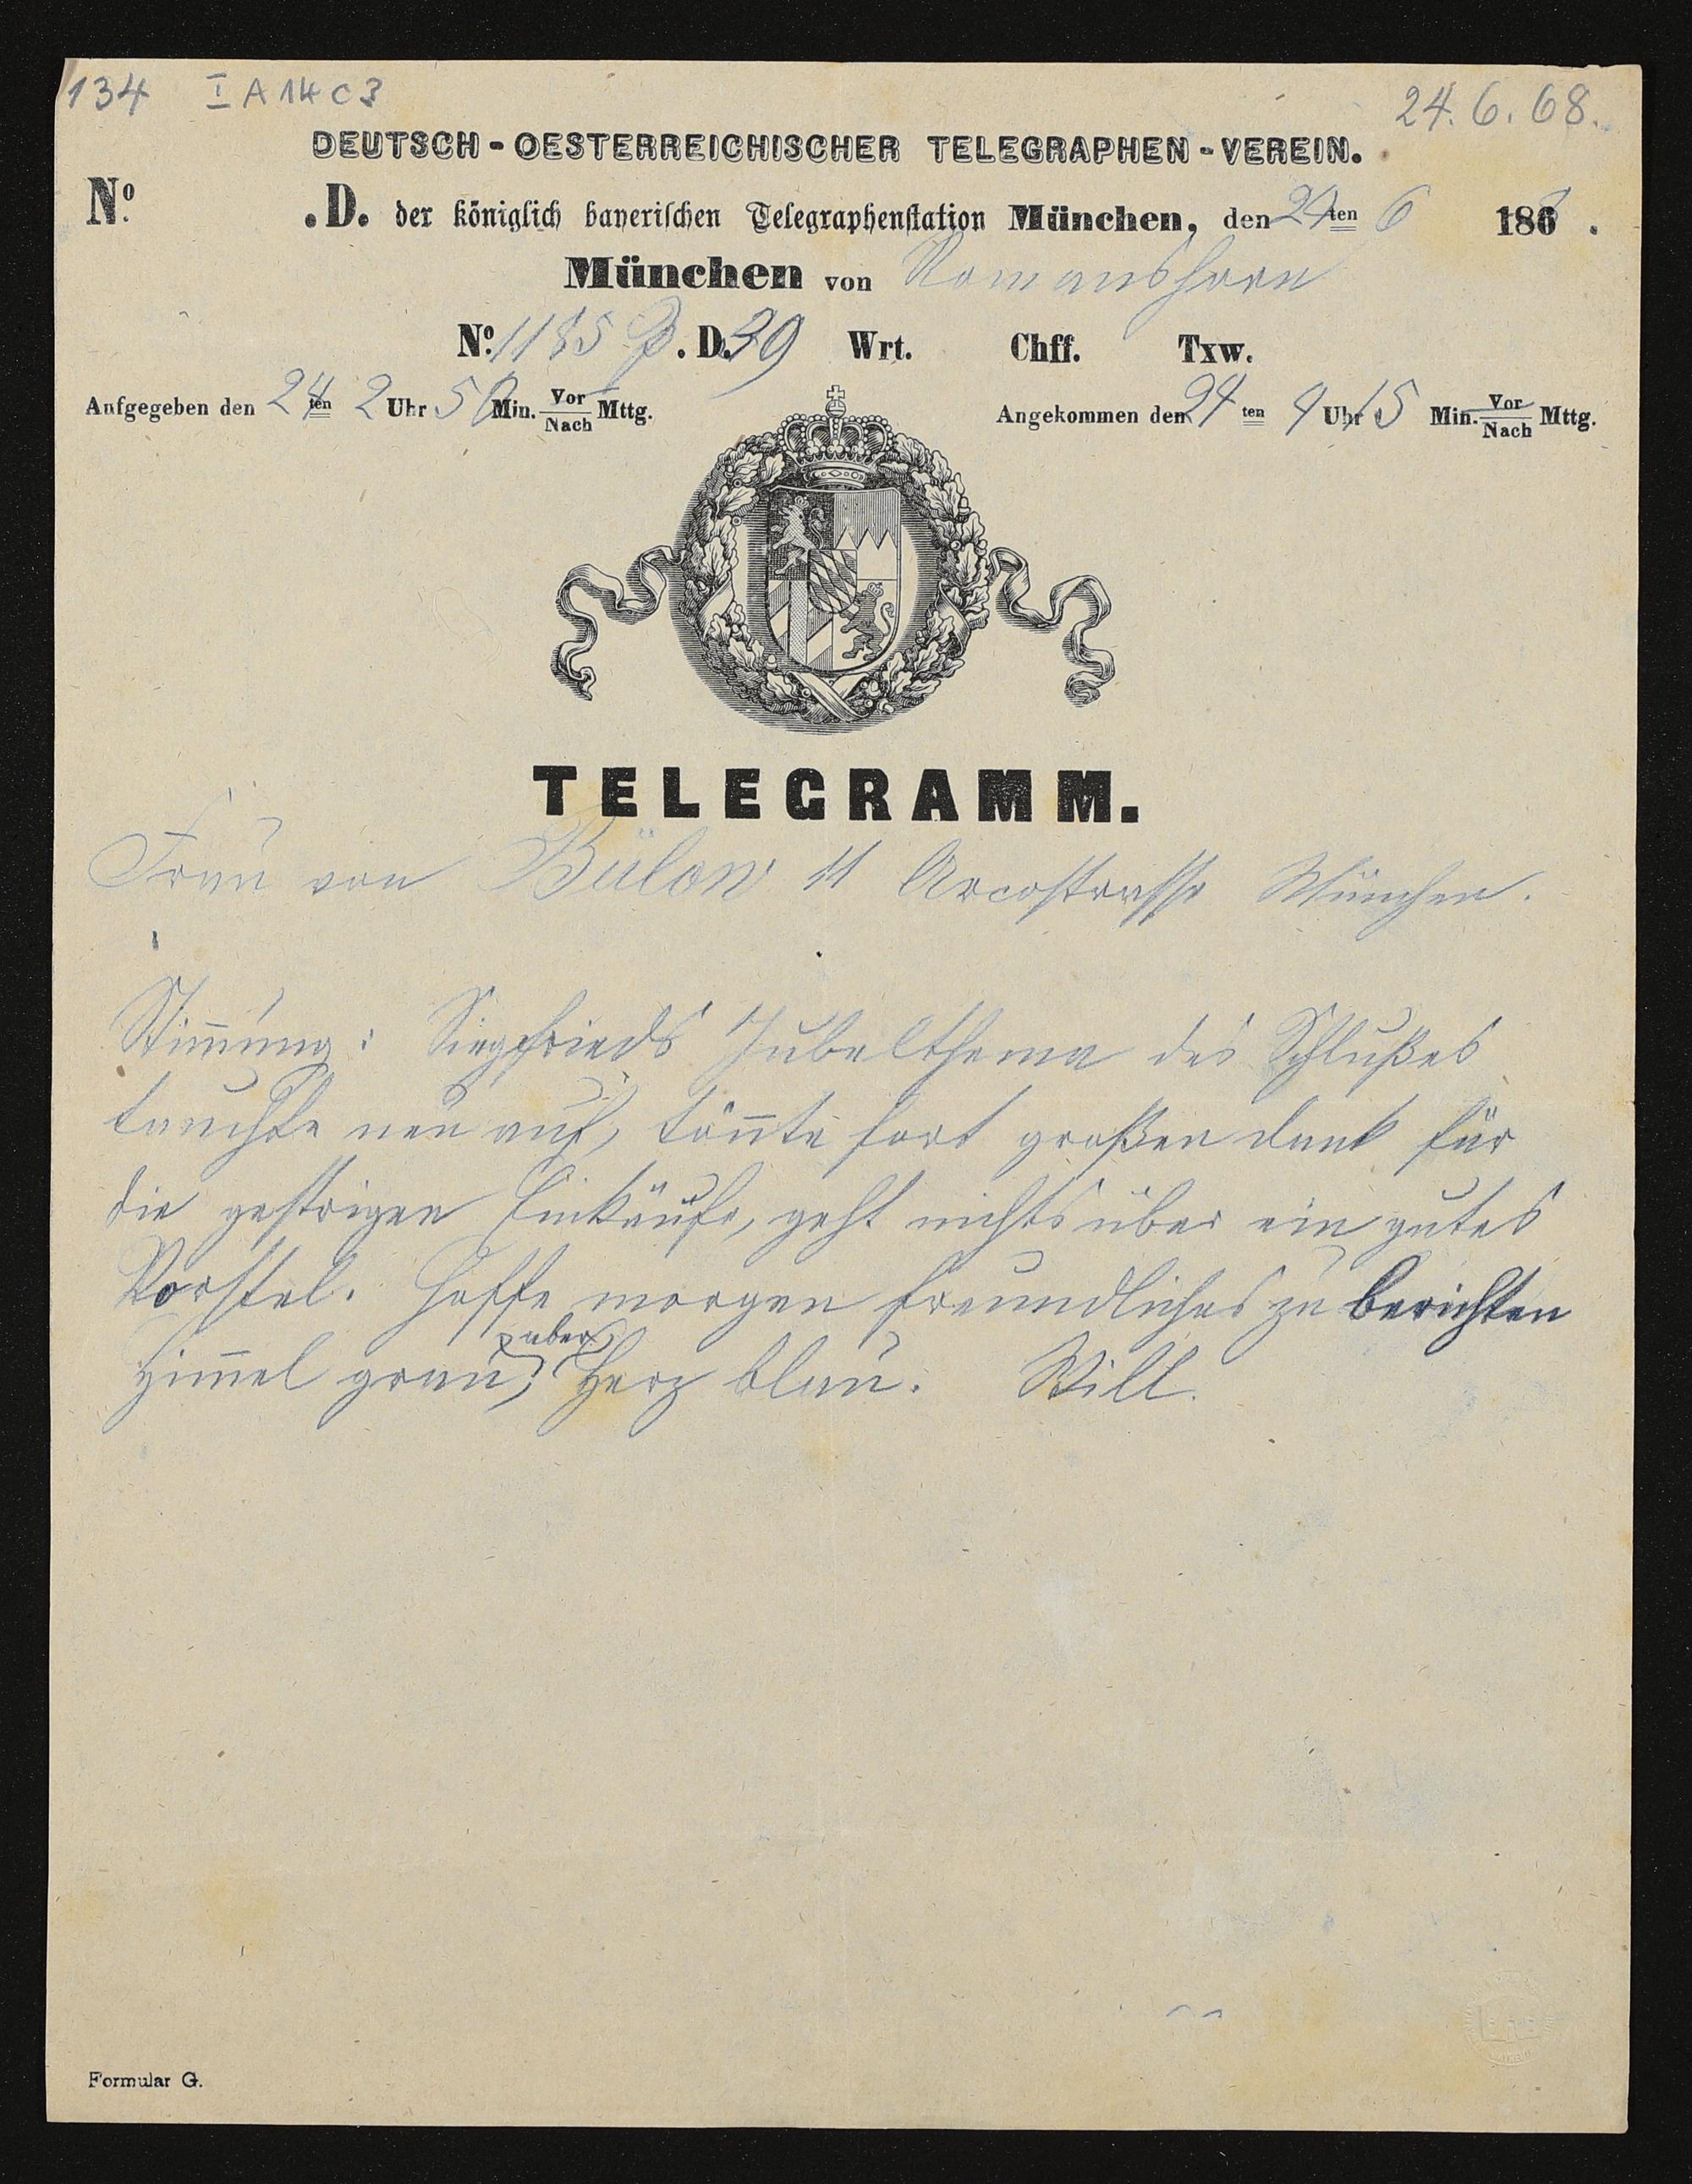 134 I A 14 c 3
24. 6. 68.
DEUTSCH - OESTERREICHISCHER TELEGRAPHEN - VEREIN.
Nº . D. der königlich bayerischen Telegraphenstation München, den 24ten 6 1868.
München von Romanshorn
Nº. 1185 P. D. 39 Wrt. Chff. Txw.
Aufgegeben den 24 ten 2 Uhr 50 Min. Vor/Nach Mttg. Angekommen den 24 ten 4 Uhr 15 Min. Vor/Nach Mttg.
TELEGRAMM.
Frau von Bülow 11 Arcostrasse München.
Stimmung: Siegfrieds Jubelthema des Schlußes
tauchte neu auf, tönte fort großen dank für
die gestrigen Einkäufe, geht nichts über ein gutes
Hoffe morgen freundliches zu berichten
aber
Himmel grau, Herz blau. Will.
Formular G.